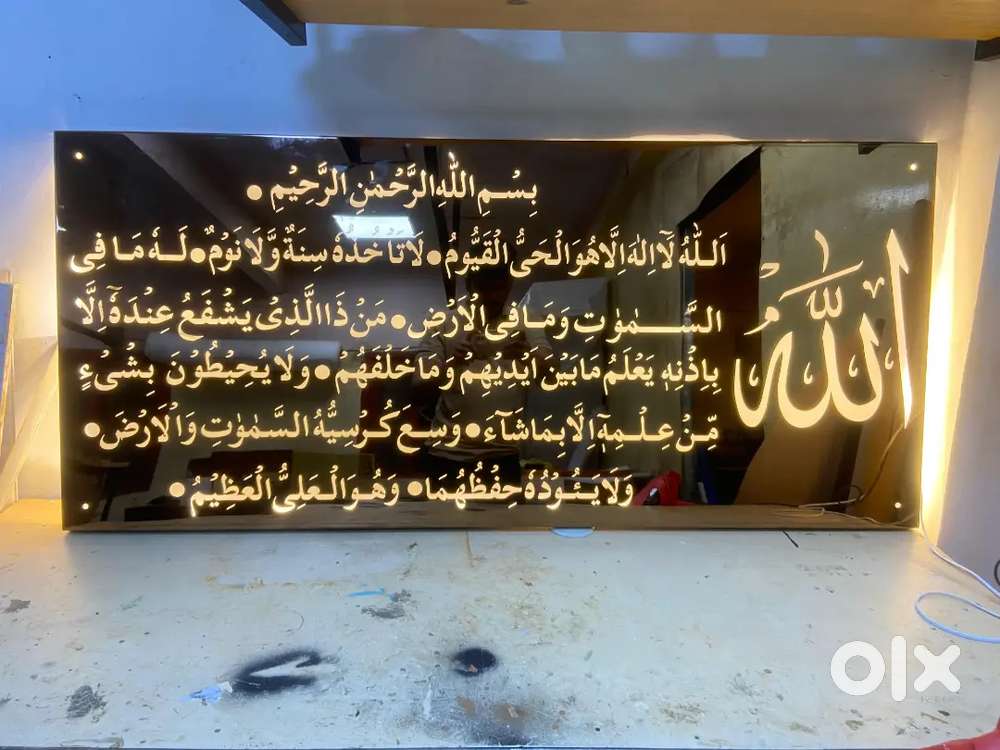 بِسْمِ اللّٰهِ الرَّحْمٰنِ الرَّحِيْمِ •
اَللّٰهُ لَآ اِلٰهَ اِلَّا هُوَ الْحَىُّ الْقَيُّوْمُ • لَا تَاْخُذُهٗ سِنَةٌ وَّلَا نَوْمٌ • لَهٗ مَا فِى
السَّمٰوٰتِ وَمَا فِى الْاَرْضِ • مَنْ ذَا الَّذِىْ يَشْفَعُ عِنْدَهٗٓ اِلَّا
بِاِذْنِهٖ يَعْلَمُ مَا بَيْنَ اَيْدِيْهِمْ وَمَا خَلْفَهُمْ • وَلَا يُحِيْطُوْنَ بِشْىْءٍ
مِّنْ عِلْمِهٖٓ اِلَّا بِمَا شَآءَ • وَسِعَ كُرْسِيُّهُ السَّمٰوٰتِ وَالْاَرْضَ •
وَلَا يَـُٔوْدُهٗ حِفْظُهُمَا • وَهُوَ الْعَلِىُّ الْعَظِيْمُ •
اللّٰهُ
olx